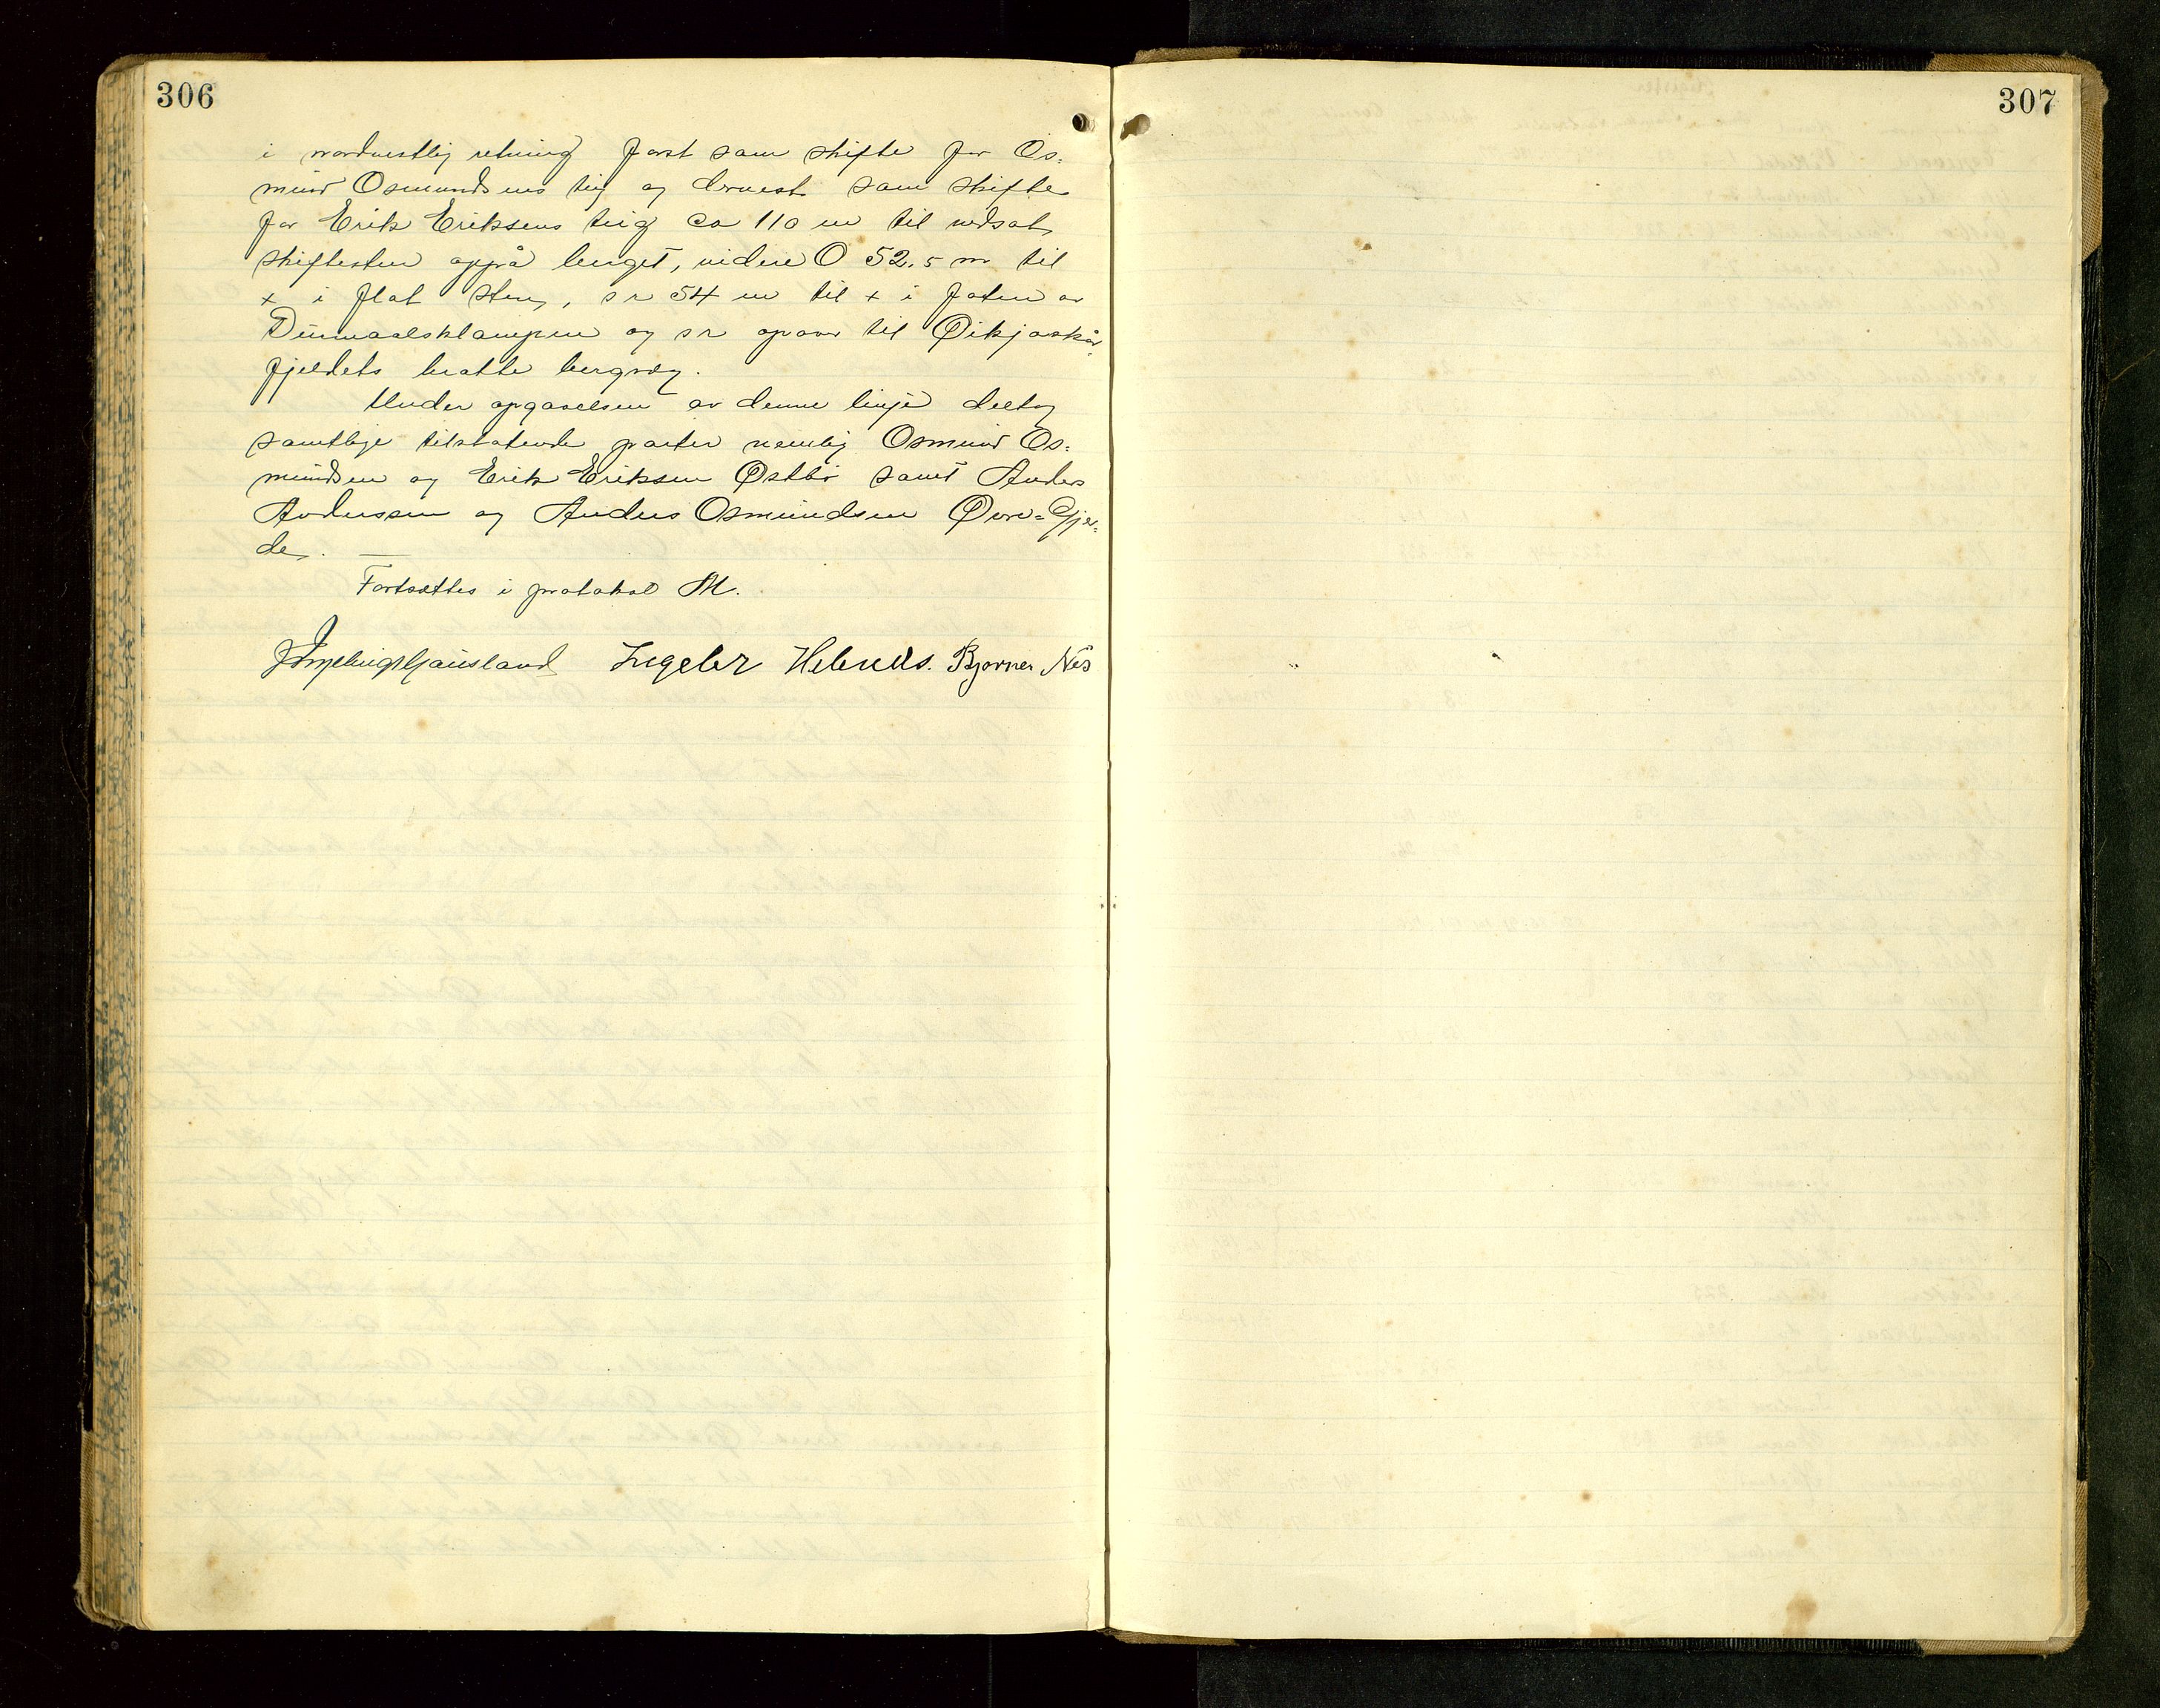 306
i nordvestlig retning først som skifte for Os-
mund Osmundsens teig og dernest som skifte
for Erik Eriksens teig ca 110 m til nedsat
skiftesten oppå berget, videre O 52.5 m til
x i flat sten, s r 54 m til x i foten av
Dunmaalsklampen og s r opover til Øikjaskår-
fjeldets bratte bergvæg.
Under opgaaelsen av denne linje deltog
samtlige tilstøtende parter nemlig Osmund Os-
mundsen og Erik Eriksen Østbø samt Anders
Andersen og Anders Osmundsen Øvre-Gjer-
de. —
Fortsættes i protokol M.
Ingebrigt Gausland Ingebr Helvids. Bjørner Nes
307